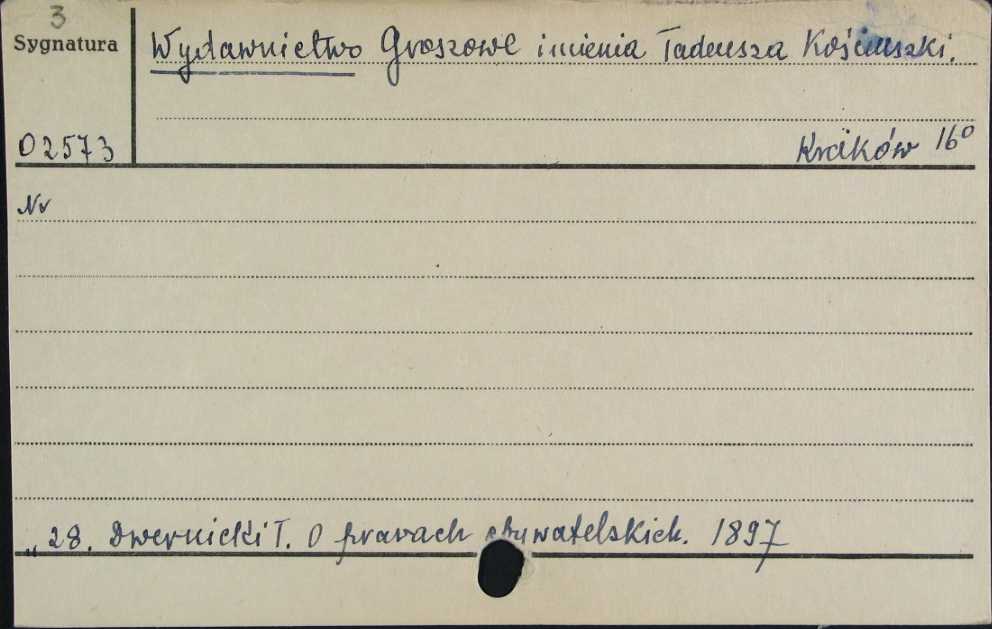 3
Sygnatura
Wydawnictwo Groszowe imienia Tadeusza Kościuszki.
02573
Kraków 16°
Nr
„ 28. Dwernicki T. O prawach obywatelskich. 1897